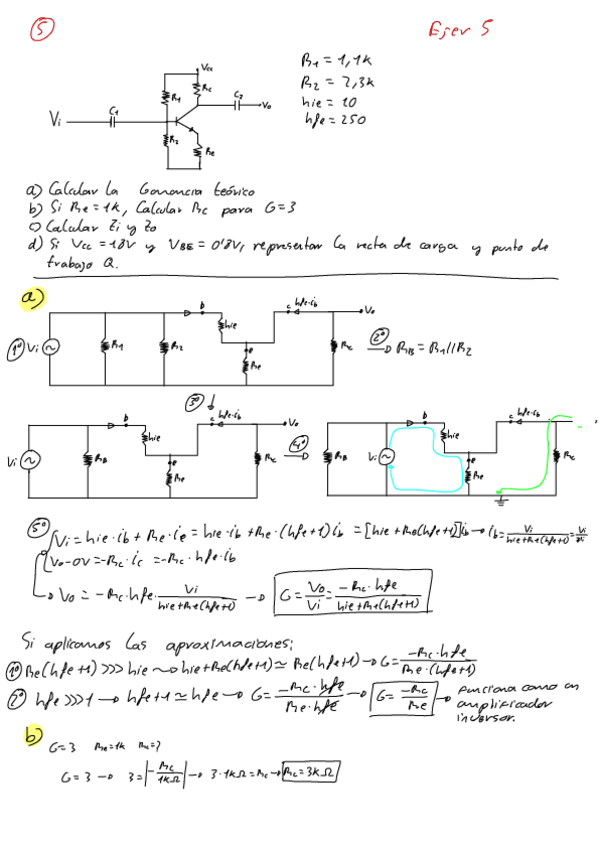 5
Ejer 5
R1 = 1,1k
R2 = 2,3k
hie = 10
hfe = 250
Vcc
R1
Rc
C2
Vo
C1
Vi
R2
Re
a) Calcular la Ganancia teórico
b) Si Re = 1k, Calcular Rc para G=3
c) Calcular Zi y Zo
d) Si Vcc = 18V y VBE = 0'8V, representar la recta de carga y punto de
trabajo Q.
a)
1º Vi R1 R2 b hie e Re c hfe·ib Rc Vo 2º RB = R1//R2
3º
Vi RB b hie e Re c hfe·ib Rc Vo 4º RB Vi b hie e Re c hfe·ib Rc
5º Vi = hie·ib + Re·ie = hie·ib + Re·(hfe+1)ib = [hie+Re(hfe+1)]ib → ib = Vi/hie+Re(hfe+1) =
Vo-0V = -Rc·ic = -Rc·hfe·ib
Vo = -Rc·hfe·Vi/hie+Re(hfe+1) → G = Vo/Vi = -Rc·hfe/hie+Re(hfe+1)
Si aplicamos las aproximaciones:
1º Re(hfe+1) >>> hie → hie+Re(hfe+1) ≃ Re(hfe+1) → G = -Rc·hfe/Re·(hfe+1)
2º hfe >>> 1 → hfe+1 ≃ hfe → G = -Rc·hfe/Re·hfe → G = -Rc/Re → Funciona como un
amplificador
inversor.
b)
G=3 Re=1k Rc=?
G = 3 → 3 = |-Rc/1kΩ| → 3·1kΩ = Rc → Rc = 3kΩ